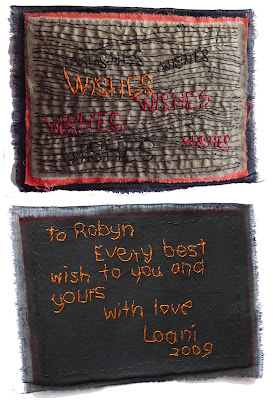 WISHES WISHES
WISHES
WISHES
WISHES
WISHES
WISHES
to Robyn
Every best
wish to you and
yours
with love
Loani
2009